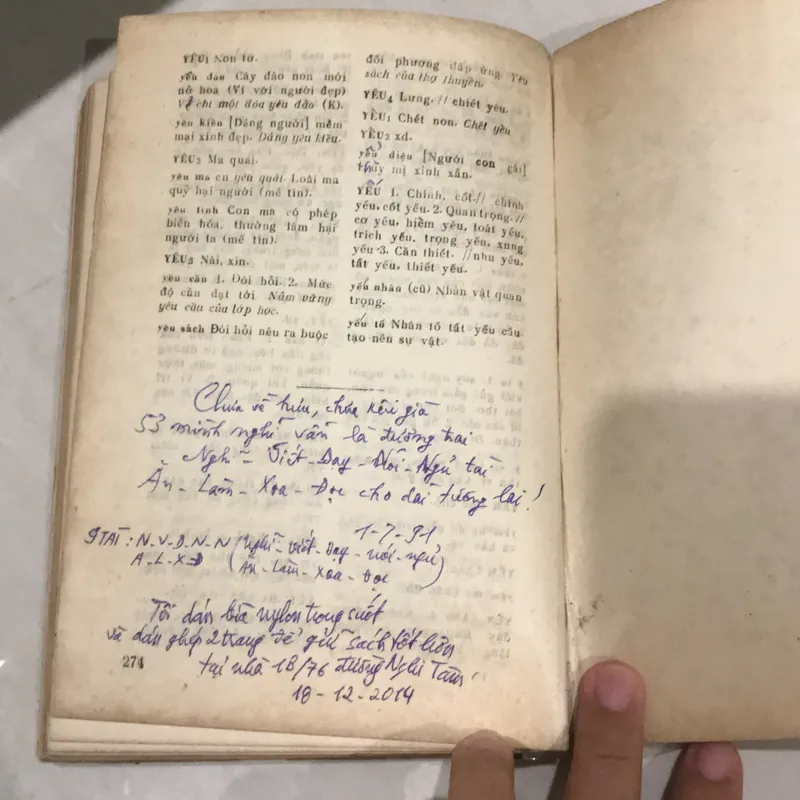 YÊU₁ Non tơ.
yêu đào Cây đào non mới
nở hoa (Ví với người đẹp)
Ví chi một đóa yêu đào (K).
yêu kiều [Dáng người] mềm
mại xinh đẹp. Dáng yêu kiều.
YÊU₂ Ma quái.
yêu ma cn yêu quái. Loài ma
quỷ hại người (mê tín).
yêu tinh Con ma có phép
biến hóa, thường làm hại
người ta (mê tín).
YÊU₃ Nài, xin.
yêu cầu 1. Đòi hỏi. 2. Mức
độ cần đạt tới Nắm vững
yêu cầu của lớp học.
yêu sách Đòi hỏi nêu ra buộc
đối phương đáp ứng Yêu
sách của thợ thuyền.
YÊU₄ Lưng. // chiết yêu.
YỂU₁ Chết non. Chết yểu
YỂU₂ xd.
yểu điệu [Người con gái]
thùy mị xinh xắn.
YẾU 1. Chính, cốt. // chính
yếu, cốt yếu. 2. Quan trọng. //
cơ yếu, hiểm yếu, toát yếu,
trích yếu, trọng yếu, xung
yếu 3. Cần thiết. // nhu yếu,
tất yếu, thiết yếu.
yếu nhân (cũ) Nhân vật quan
trọng.
yếu tố Nhân tố tất yếu cấu
tạo nên sự vật.
Chưa về hưu, chưa kêu già
53 mình nghĩ vẫn là đương trai
Nghĩ - Viết - Dạy - Nói - Ngủ tài
Ăn - Làm - Xoa - Đọc cho dài tương lai!
1-7-91
9 TÀI : N-V-D-N-N (Nghĩ - Viết - Dạy - nói - ngủ
A-L-X-Đ (Ăn - Làm - Xoa - Đọc )
Tôi dán bìa nylon trong suốt
và dán ghép 2 trang để giữ sách tốt hơn
tại nhà 1B/76 đường Nghi Tàm
18-12-2014
274